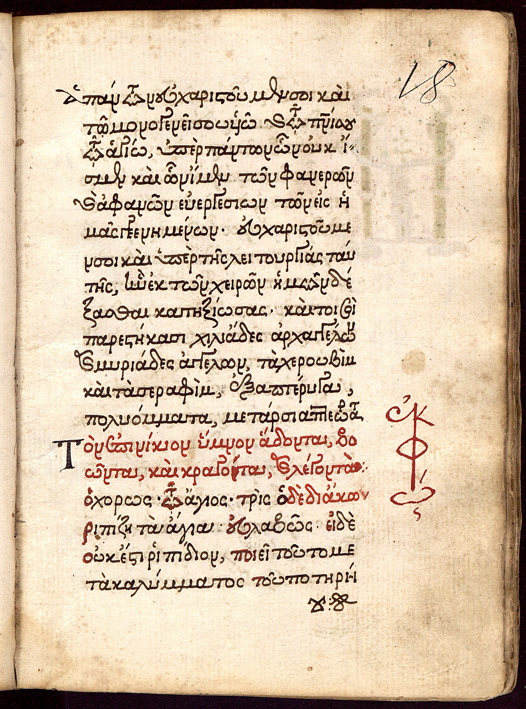 18
ἁπάντων εὐχαριστοῦμέν σοι καὶ
τῶ μονογενεῖ σου υἱῶ καὶ τῶ πνι σου
τῶ ἁγίω, ὑπὲρ πάντων ὧν οὐκ ἴ
σμεν καὶ ὧν ἴσμεν τῶν φανερῶν
καὶ ἀφανῶν εὐεργεσιῶν τῶν εἰς ἡ
μᾶς γεγενημένων· εὐχαριστοῦμέ
ν σοι καὶ ὑπὲρ τῆς λειτουργίας ταύ
της, ἣν ἐκ τῶν χειρῶν ἡμῶν δέ
ξασθαι κατηξίωσας· καίτοι σοι
παρεστήκασι χιλιάδες ἀρχαγγέλων
καὶ μυριάδες ἀγγέλων, τὰ χερουβὶμ
καὶ τὰ σεραφὶμ, ἑξαπτέρυγα,
πολυόμματα, μετάρσια πτερωτὰ
Τὸν ἐπινίκιον ὕμνον ἄδοντα, βο
ῶντα, καὶ κραγότα, καὶ λέγοντα:
ὁ χορὸς τὸ ἅγιος· τρὶς ὁ δὲ διάκων
ριπίζει τὰ ἅγια εὐλαβῶς· εἰ δὲ
οὐκ ἔστι ριπίδιον, ποιεῖ τοῦτο με
τὰ καλύμματος τοῦ ποτηρίου